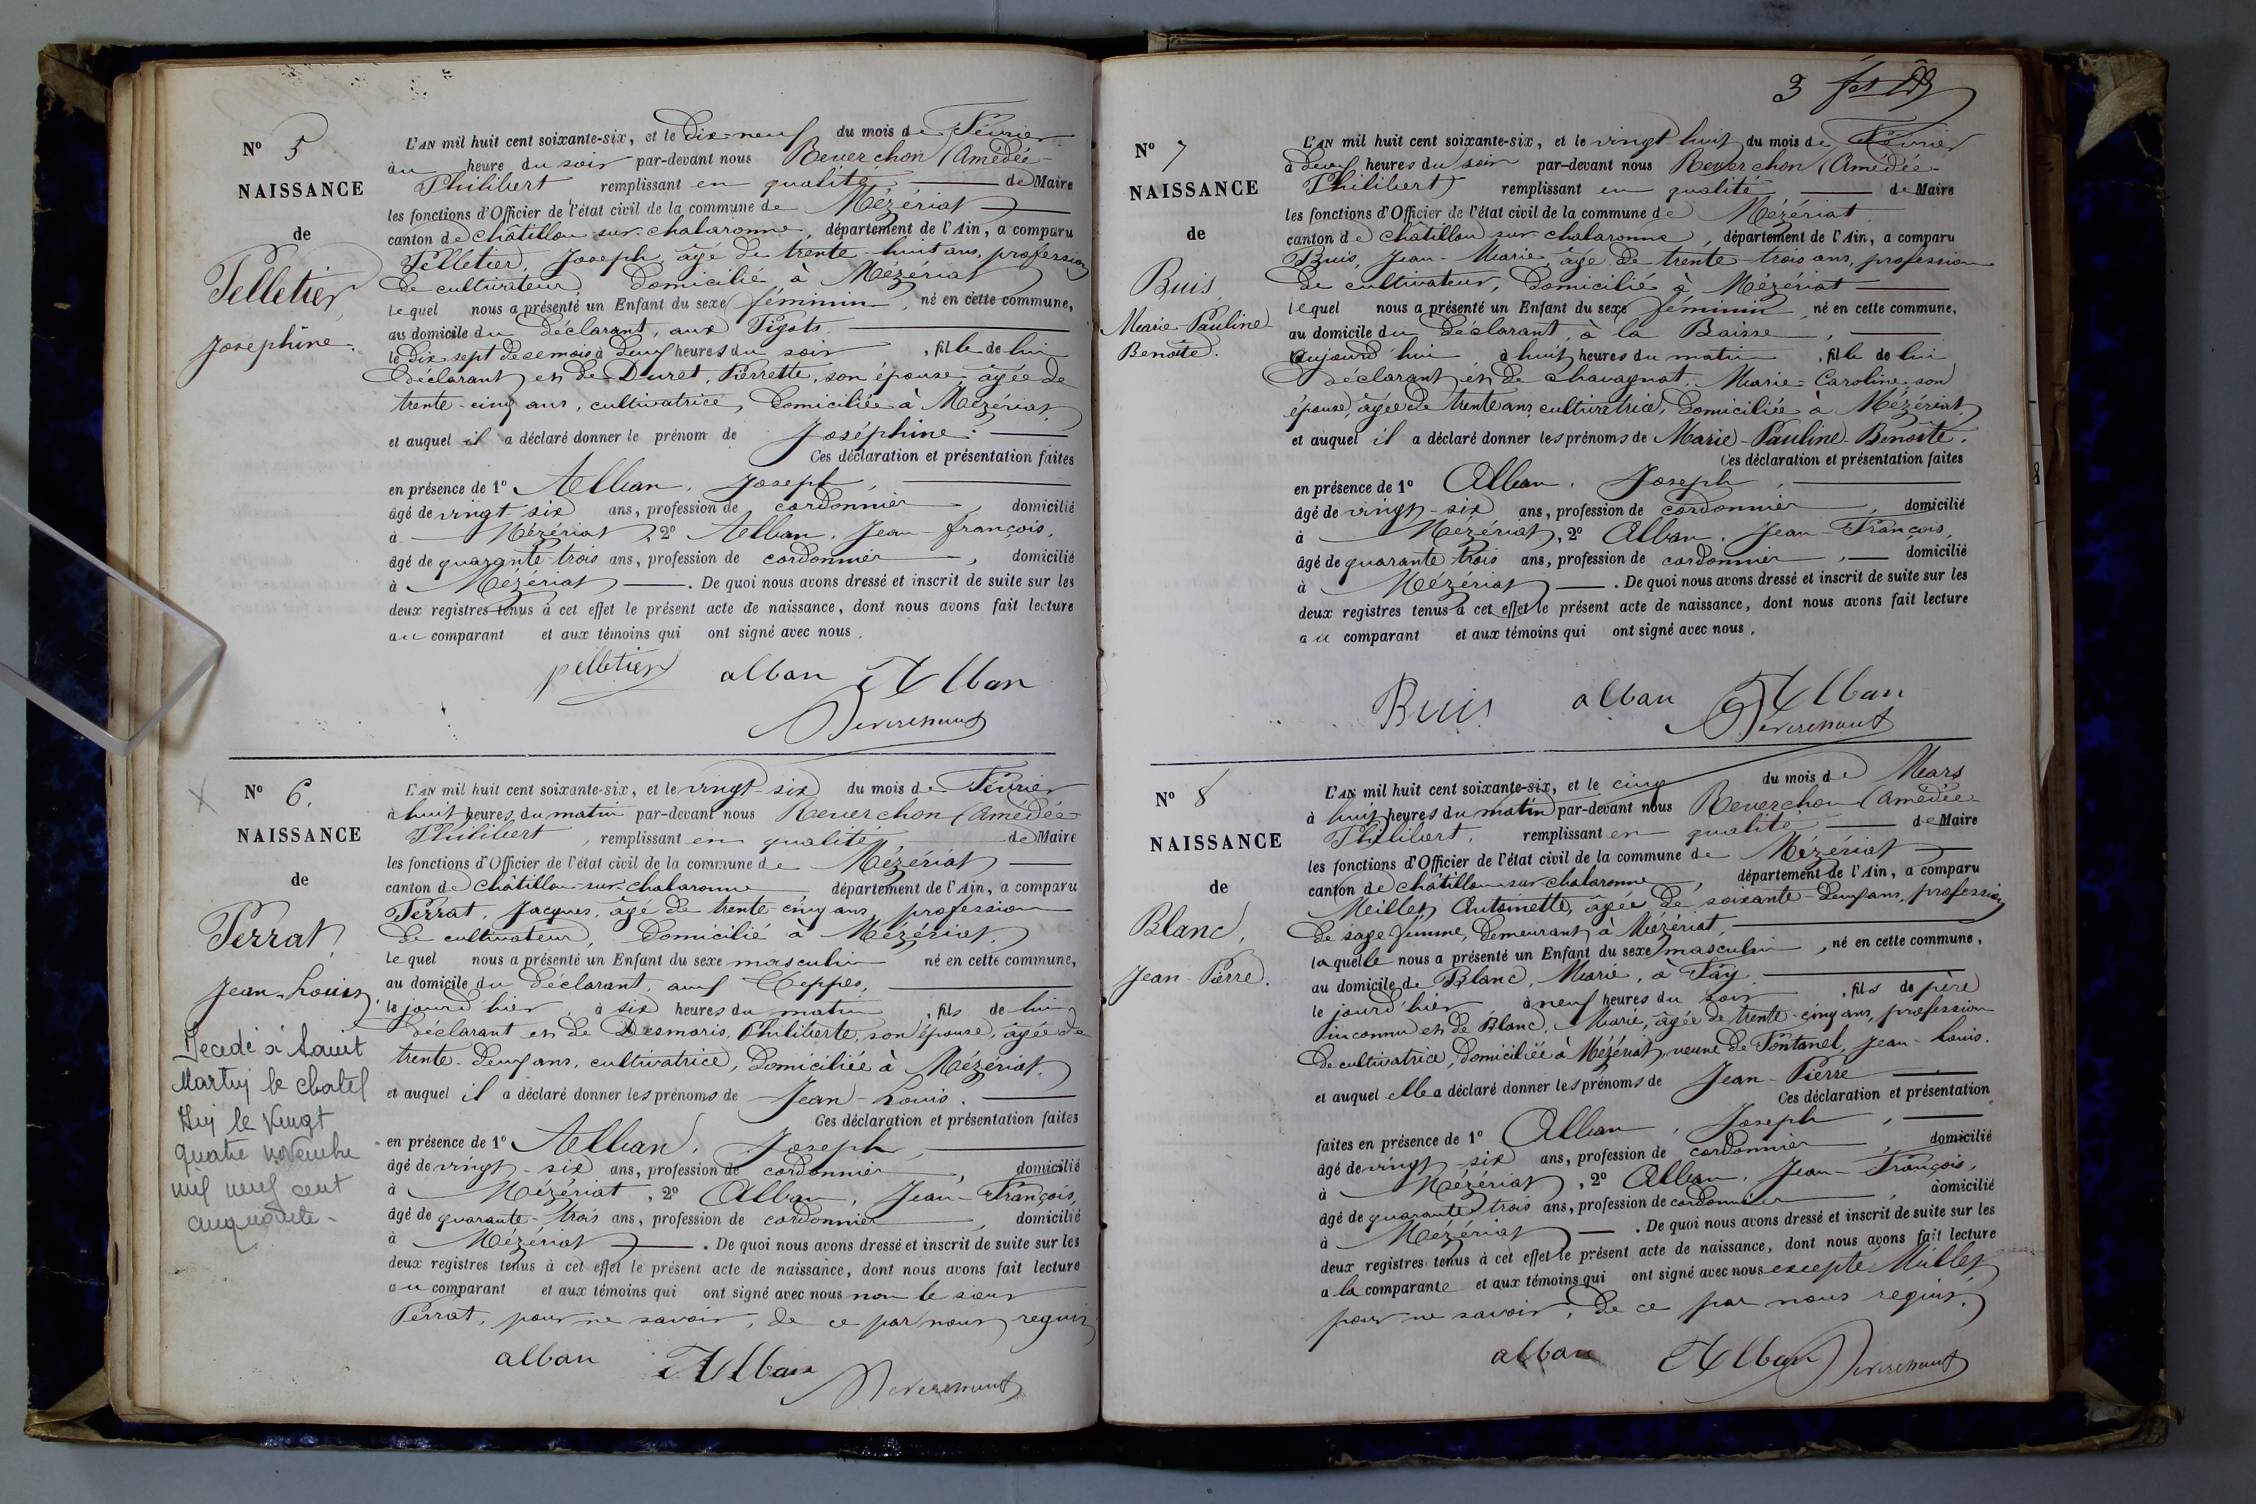 Nº 5
NAISSANCE
de
Pelletier,
Joséphine.
L'AN mil huit cent soixante-six, et le Dix-neuf du mois de Février
à une heure du soir par-devant nous Reverchon (Amédée-
Philibert remplissant en qualité de Maire
les fonctions d'Officier de l'état civil de la commune de Mézériat
canton de Châtillon-sur-Chalaronne, département de l'Ain, a comparu
Pelletier, Joseph, âgé de trente-huit ans, profession
de cultivateur, domicilié à Mézériat
lequel nous a présenté un Enfant du sexe féminin, né en cette commune,
au domicile du déclarant, aux Pigots.
le Dix sept de ce mois à deux heures du soir, fille de lui
déclarant et de Duret, Pierrette, son épouse âgée de
trente-cinq ans, cultivatrice, domiciliée à Mézériat
et auquel il a déclaré donner le prénom de Joséphine.
Ces déclaration et présentation faites
en présence de 1º Alban, Joseph,
âgé de vingt-six ans, profession de cordonnier, domicilié
à Mézériat, 2º Alban, Jean-François,
âgé de quarante-trois ans, profession de cordonnier, domicilié
à Mézériat. De quoi nous avons dressé et inscrit de suite sur les
deux registres tenus à cet effet le présent acte de naissance, dont nous avons fait lecture
au comparant et aux témoins qui ont signé avec nous.
pelletier alban Alban
Nº 6.
NAISSANCE
de
Perrat,
Jean-Louis.
Décédé à Saint
Martin le chatel
Ain le Vingt
quatre novembre
mil neuf cent
cinquante-
L'AN mil huit cent soixante-six, et le vingt-six du mois de Février
à huit heures du matin par-devant nous Reverchon (Amédée
Philibert, remplissant en qualité de Maire
les fonctions d'Officier de l'état civil de la commune de Mézériat
canton de Châtillon-sur-Chalaronne département de l'Ain, a comparu
Perrat, Jacques, âgé de trente-cinq ans, profession
de cultivateur, domicilié à Mézériat.
lequel nous a présenté un Enfant du sexe masculin né en cette commune,
au domicile du déclarant, aux Teppes,
le jourd'hier, à six heures du matin, fils de lui
déclarant et de Desmaris, Philiberte, son épouse, âgée de
trente-deux ans, cultivatrice, domiciliée à Mézériat.
et auquel il a déclaré donner les prénoms de Jean-Louis.
Ces déclaration et présentation faites
en présence de 1º Alban, Joseph,
âgé de vingt-six ans, profession de cordonnier, domicilié
à Mézériat, 2º Alban, Jean-François,
âgé de quarante-trois ans, profession de cordonnier, domicilié
à Mézériat. De quoi nous avons dressé et inscrit de suite sur les
deux registres tenus à cet effet le présent acte de naissance, dont nous avons fait lecture
au comparant et aux témoins qui ont signé avec nous non le sieur
Perrat, pour ne savoir, de ce par nous requis
alban Alban
3
Nº 7
NAISSANCE
de
Buis
Marie-Pauline
Benoîte.
L'AN mil huit cent soixante-six, et le vingt-huit du mois de Février
à deux heures du soir par-devant nous Reverchon (Amédée-
Philibert) remplissant en qualité de Maire
les fonctions d'Officier de l'état civil de la commune de Mézériat
canton de Châtillon-sur-Chalaronne, département de l'Ain, a comparu
Buis, Jean-Marie âgé de trente-trois ans, profession
de cultivateur, domicilié à Mézériat
lequel nous a présenté un Enfant du sexe féminin, né en cette commune,
au domicile du déclarant, à la Baisse,
aujourd'hui à huit heures du matin, fille de lui
déclarant et de Chavagnat, Marie-Caroline son
épouse, âgée de trente ans cultivatrice, domiciliée à Mézériat
et auquel il a déclaré donner les prénoms de Marie-Pauline-Benoîte.
Ces déclaration et présentation faites
en présence de 1º Alban, Joseph,
âgé de vingt-six ans, profession de cordonnier, domicilié
à Mézériat, 2º Alban, Jean-François,
âgé de quarante-trois ans, profession de cordonnier, domicilié
à Mézériat. De quoi nous avons dressé et inscrit de suite sur les
deux registres tenus à cet effet le présent acte de naissance, dont nous avons fait lecture
au comparant et aux témoins qui ont signé avec nous.
Buis alban Alban
Nº 8
NAISSANCE
de
Blanc,
Jean-Pierre.
L'AN mil huit cent soixante-six, et le cinq du mois de Mars
à huit heures du matin par-devant nous Reverchon (Amédée
Philibert, remplissant en qualité de Maire
les fonctions d'Officier de l'état civil de la commune de Mézériat
canton de Châtillon-sur-Chalaronne, département de l'Ain, a comparu
Millet, Antoinette, âgée de soixante-deux ans, profession
de sage femme, demeurant à Mézériat,
laquelle nous a présenté un Enfant du sexe masculin, né en cette commune,
au domicile de Blanc, Marie, à Fay.
le jourd'hier à neuf heures du soir, fils de père
inconnu et de Blanc, Marie, âgée de trente-cinq ans, profession
de cultivatrice, domiciliée à Mézériat, veuve de Fontanel, Jean-Louis.
et auquel elle a déclaré donner les prénoms de Jean-Pierre
Ces déclaration et présentation
faites en présence de 1º Alban, Joseph,
âgé de vingt-six ans, profession de cordonnier, domicilié
à Mézériat, 2º Alban, Jean-François,
âgé de quarante-trois ans, profession de cordonnier, domicilié
à Mézériat. De quoi nous avons dressé et inscrit de suite sur les
deux registres tenus à cet effet le présent acte de naissance, dont nous avons fait lecture
a la comparante et aux témoins qui ont signé avec nous excepté Millet
pour ne savoir, de ce par nous requis.
alban Alban